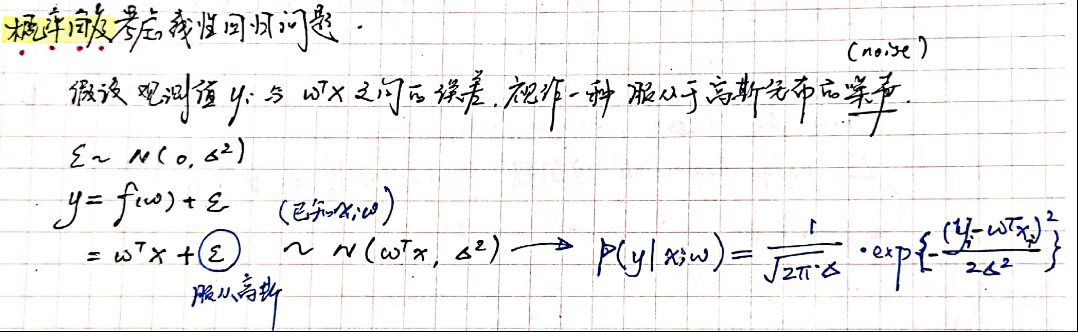 概率角度考虑线性回归问题.
(noise)
假设 观测值 yᵢ 与 wᵀx 之间的误差, 视作一种 服从于高斯分布的噪声.
ε ~ N(0, σ²)
y = f(w) + ε (已知x;w)
= wᵀx + ε ~ N(wᵀx, σ²) → p(y|x;w) = 1/(√2π·σ) · exp{-(yᵢ-wᵀxᵢ)²/2σ²}
服从高斯